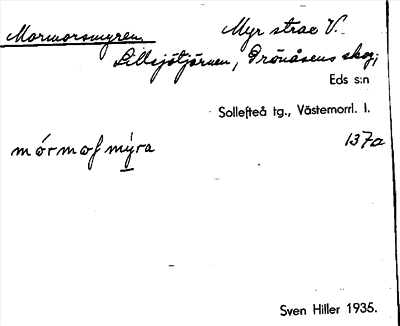 Mormorsmyren Myr strax V.
Lillsjötjärnen, Grönåsens skog,
Eds s:n
Sollefteå tg., Västernorrl. l.
mórmoſ mýra 137a
Sven Hiller 1935.